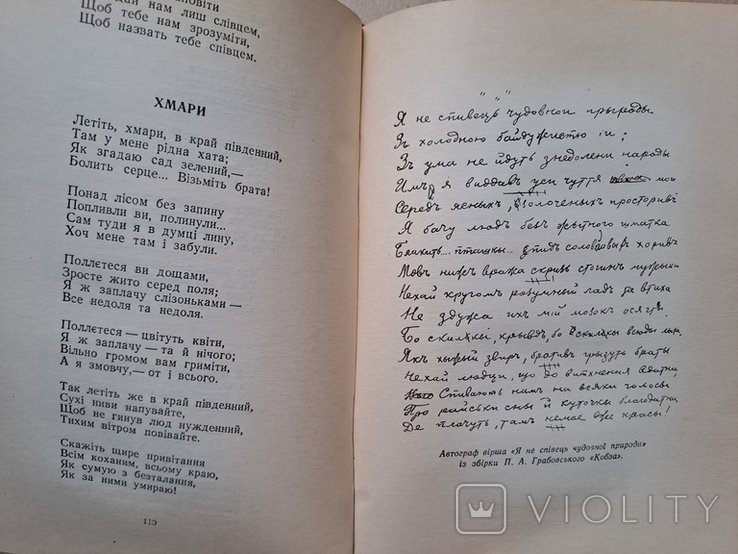 дай нам лиш слівцем,
Щоб тебе нам зрозуміти,
Щоб назвать тебе співцем.
ХМАРИ
Летіть, хмари, в край південний,
Там у мене рідна хата;
Як згадаю сад зелений,—
Болить серце... Візьміть брата!
Понад лісом без запину
Попливли ви, полинули...
Сам туди я в думці лину,
Хоч мене там і забули.
Поллєтеся ви дощами,
Зросте жито серед поля;
Я ж заплачу слізоньками —
Все недоля та недоля.
Поллєтеся — цвітуть квіти,
Я ж заплачу — та й нічого;
Вільно громом вам гриміти,
А я змовчу,— от і всього.
Так летіть же в край південний,
Сухі ниви напувайте,
Щоб не гинув люд нужденний,
Тихим вітром повівайте.
Скажіть щире привітання
Всім коханим, всьому краю,
Як сумую з безталання,
Як за ними умираю!
110
" " "
Я не спивець чудовнои прыроды
Зъ холодною байдужистю ии;
Зъ ума не йдуть знедолени народы
Имъ я виддавъ уси чуття мои
Середъ ясныхъ, золоченыхъ просторивъ
Я бачу людъ безъ жытного шматка
Блакить... пташкы... спивъ соловъёвыхъ хоривъ
Мовъ нижъ вража скризь стогинъ мужыка
Нехай кругомъ розумный ладъ та втиха
Не здужа ихъ мій мозокъ осягти
Бо скилькы крывдъ, бо скилькы всюды лыха
Якъ хыжый звиръ, бративъ грызуть браты
Нехай людци, що до витхнення здатни,
Спивають намъ на всяки голосы
Про райськи сны й куточкы благодатни
Де плачуть, тамъ немае вже красы!
Автограф вірша «Я не співець чудовної природи»
із збірки П. А. Грабовського «Кобза».
VIOLITY